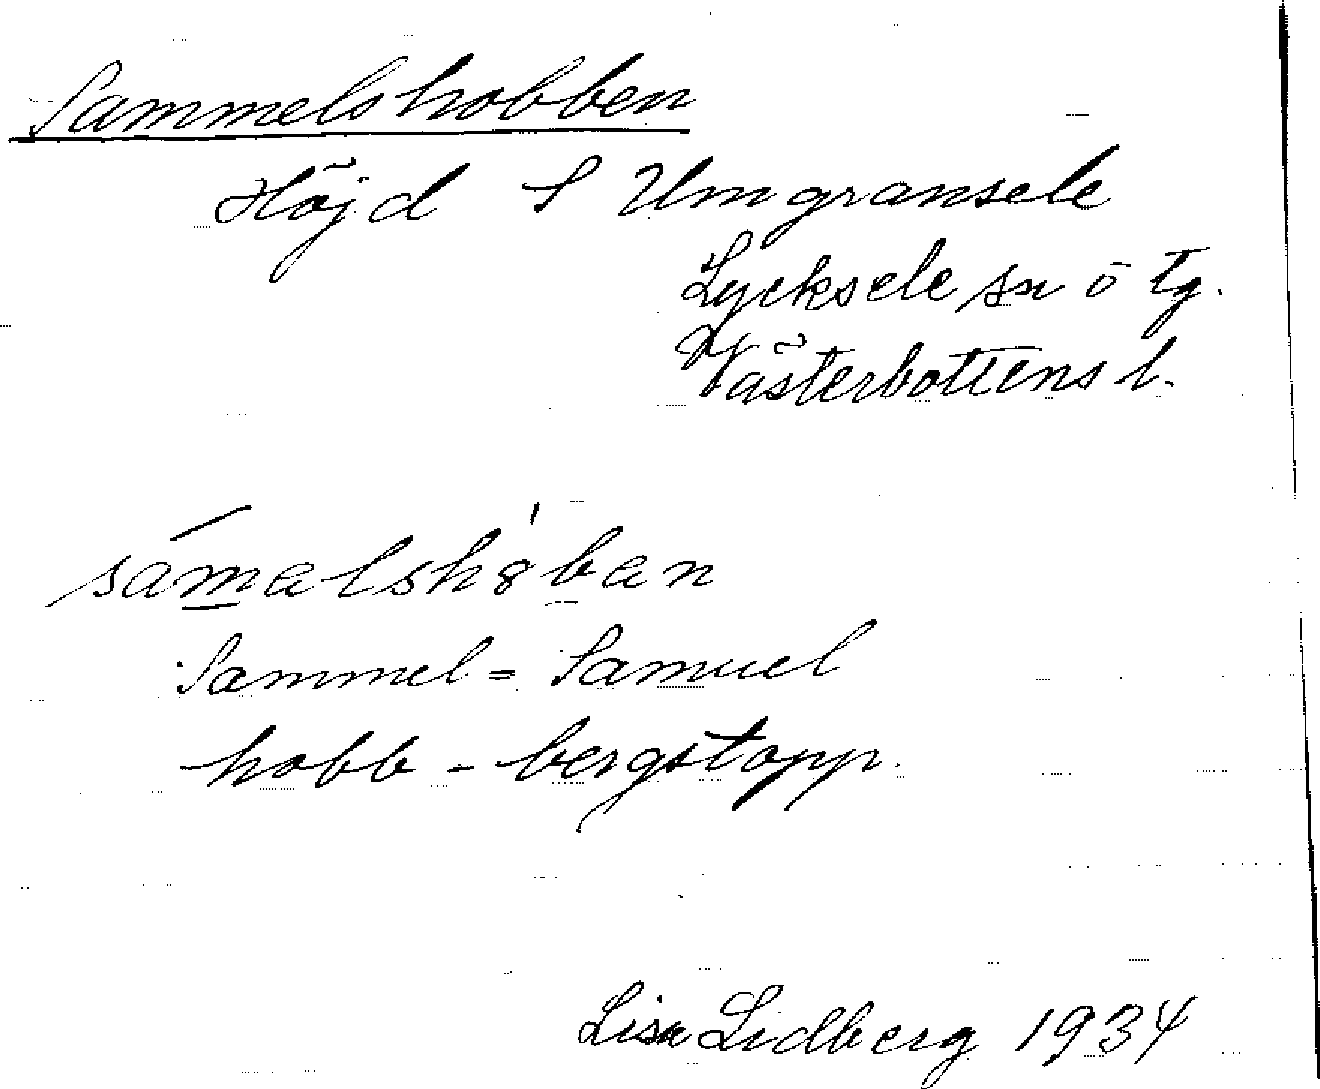 Sammelshobben
Höjd S Umgransele
Lycksele sn ö tg.
Västerbottens l.
sámalshȣ̍ban
Sammel = Samuel
hobb - bergstopp.
Lisa Lidberg 1934